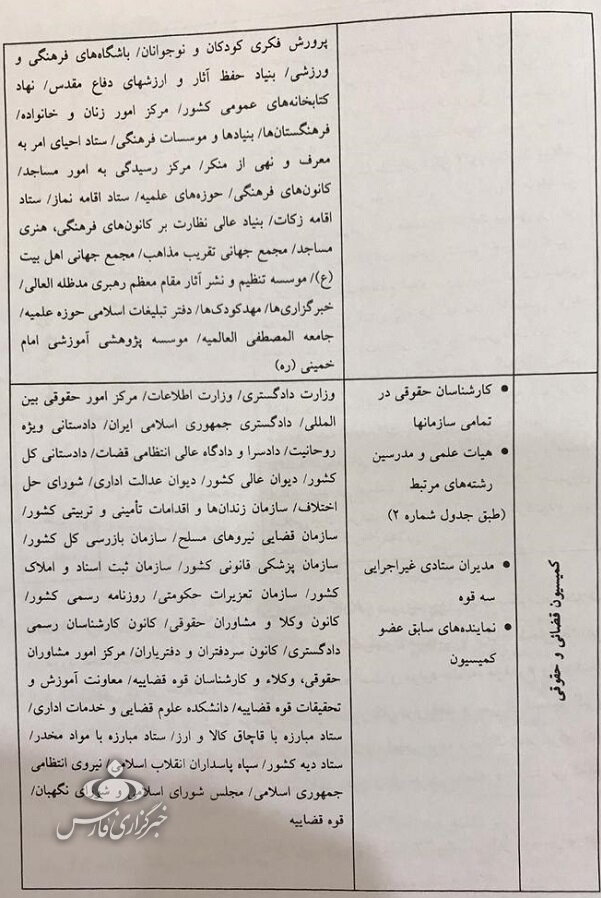 پرورش فکری کودکان و نوجوانان/ باشگاه‌های فرهنگی و
ورزشی/ بنیاد حفظ آثار و ارزشهای دفاع مقدس/ نهاد
کتابخانه‌های عمومی کشور/ مرکز امور زنان و خانواده/
فرهنگستان‌ها/ بنیادها و موسسات فرهنگی/ ستاد احیای امر به
معرف و نهی از منکر/ مرکز رسیدگی به امور مساجد/
کانون‌های فرهنگی/ حوزه‌های علمیه/ ستاد اقامه نماز/ ستاد
اقامه زکات/ بنیاد عالی نظارت بر کانون‌های فرهنگی، هنری
مساجد/ مجمع جهانی تقریب مذاهب/ مجمع جهانی اهل بیت
(ع)/ موسسه تنظیم و نشر آثار مقام معظم رهبری مدظله العالی/
خبرگزاری‌ها/ مهدکودک‌ها/ دفتر تبلیغات اسلامی حوزه علمیه/
جامعه المصطفی العالمیه/ موسسه پژوهشی آموزشی امام
خمینی (ره)
کمیسیون قضائی و حقوقی
• کارشناسان حقوقی در
تمامی سازمانها
• هیات علمی و مدرسین
رشته‌های مرتبط
(طبق جدول شماره ۲)
• مدیران ستادی غیراجرایی
سه قوه
• نماینده‌های سابق عضو
کمیسیون
وزارت دادگستری/ وزارت اطلاعات/ مرکز امور حقوقی بین
المللی/ دادگستری جمهوری اسلامی ایران/ دادستانی ویژه
روحانیت/ دادسرا و دادگاه عالی انتظامی قضات/ دادستانی کل
کشور/ دیوان عالی کشور/ دیوان عدالت اداری/ شورای حل
اختلاف/ سازمان زندان‌ها و اقدامات تأمینی و تربیتی کشور/
سازمان قضایی نیروهای مسلح/ سازمان بازرسی کل کشور/
سازمان پزشکی قانونی کشور/ سازمان ثبت اسناد و املاک
کشور/ سازمان تعزیرات حکومتی/ روزنامه رسمی کشور/
کانون وکلا و مشاوران حقوقی/ کانون کارشناسان رسمی
دادگستری/ کانون سردفتران و دفتریاران/ مرکز امور مشاوران
حقوقی، وکلاء و کارشناسان قوه قضاییه/ معاونت آموزش و
تحقیقات قوه قضاییه/ دانشکده علوم قضایی و خدمات اداری/
ستاد مبارزه با قاچاق کالا و ارز/ ستاد مبارزه با مواد مخدر/
ستاد دیه کشور/ سپاه پاسداران انقلاب اسلامی/ نیروی انتظامی
جمهوری اسلامی/ مجلس شورای اسلامی و شورای نگهبان/
قوه قضاییه
خبرگزاری فارس